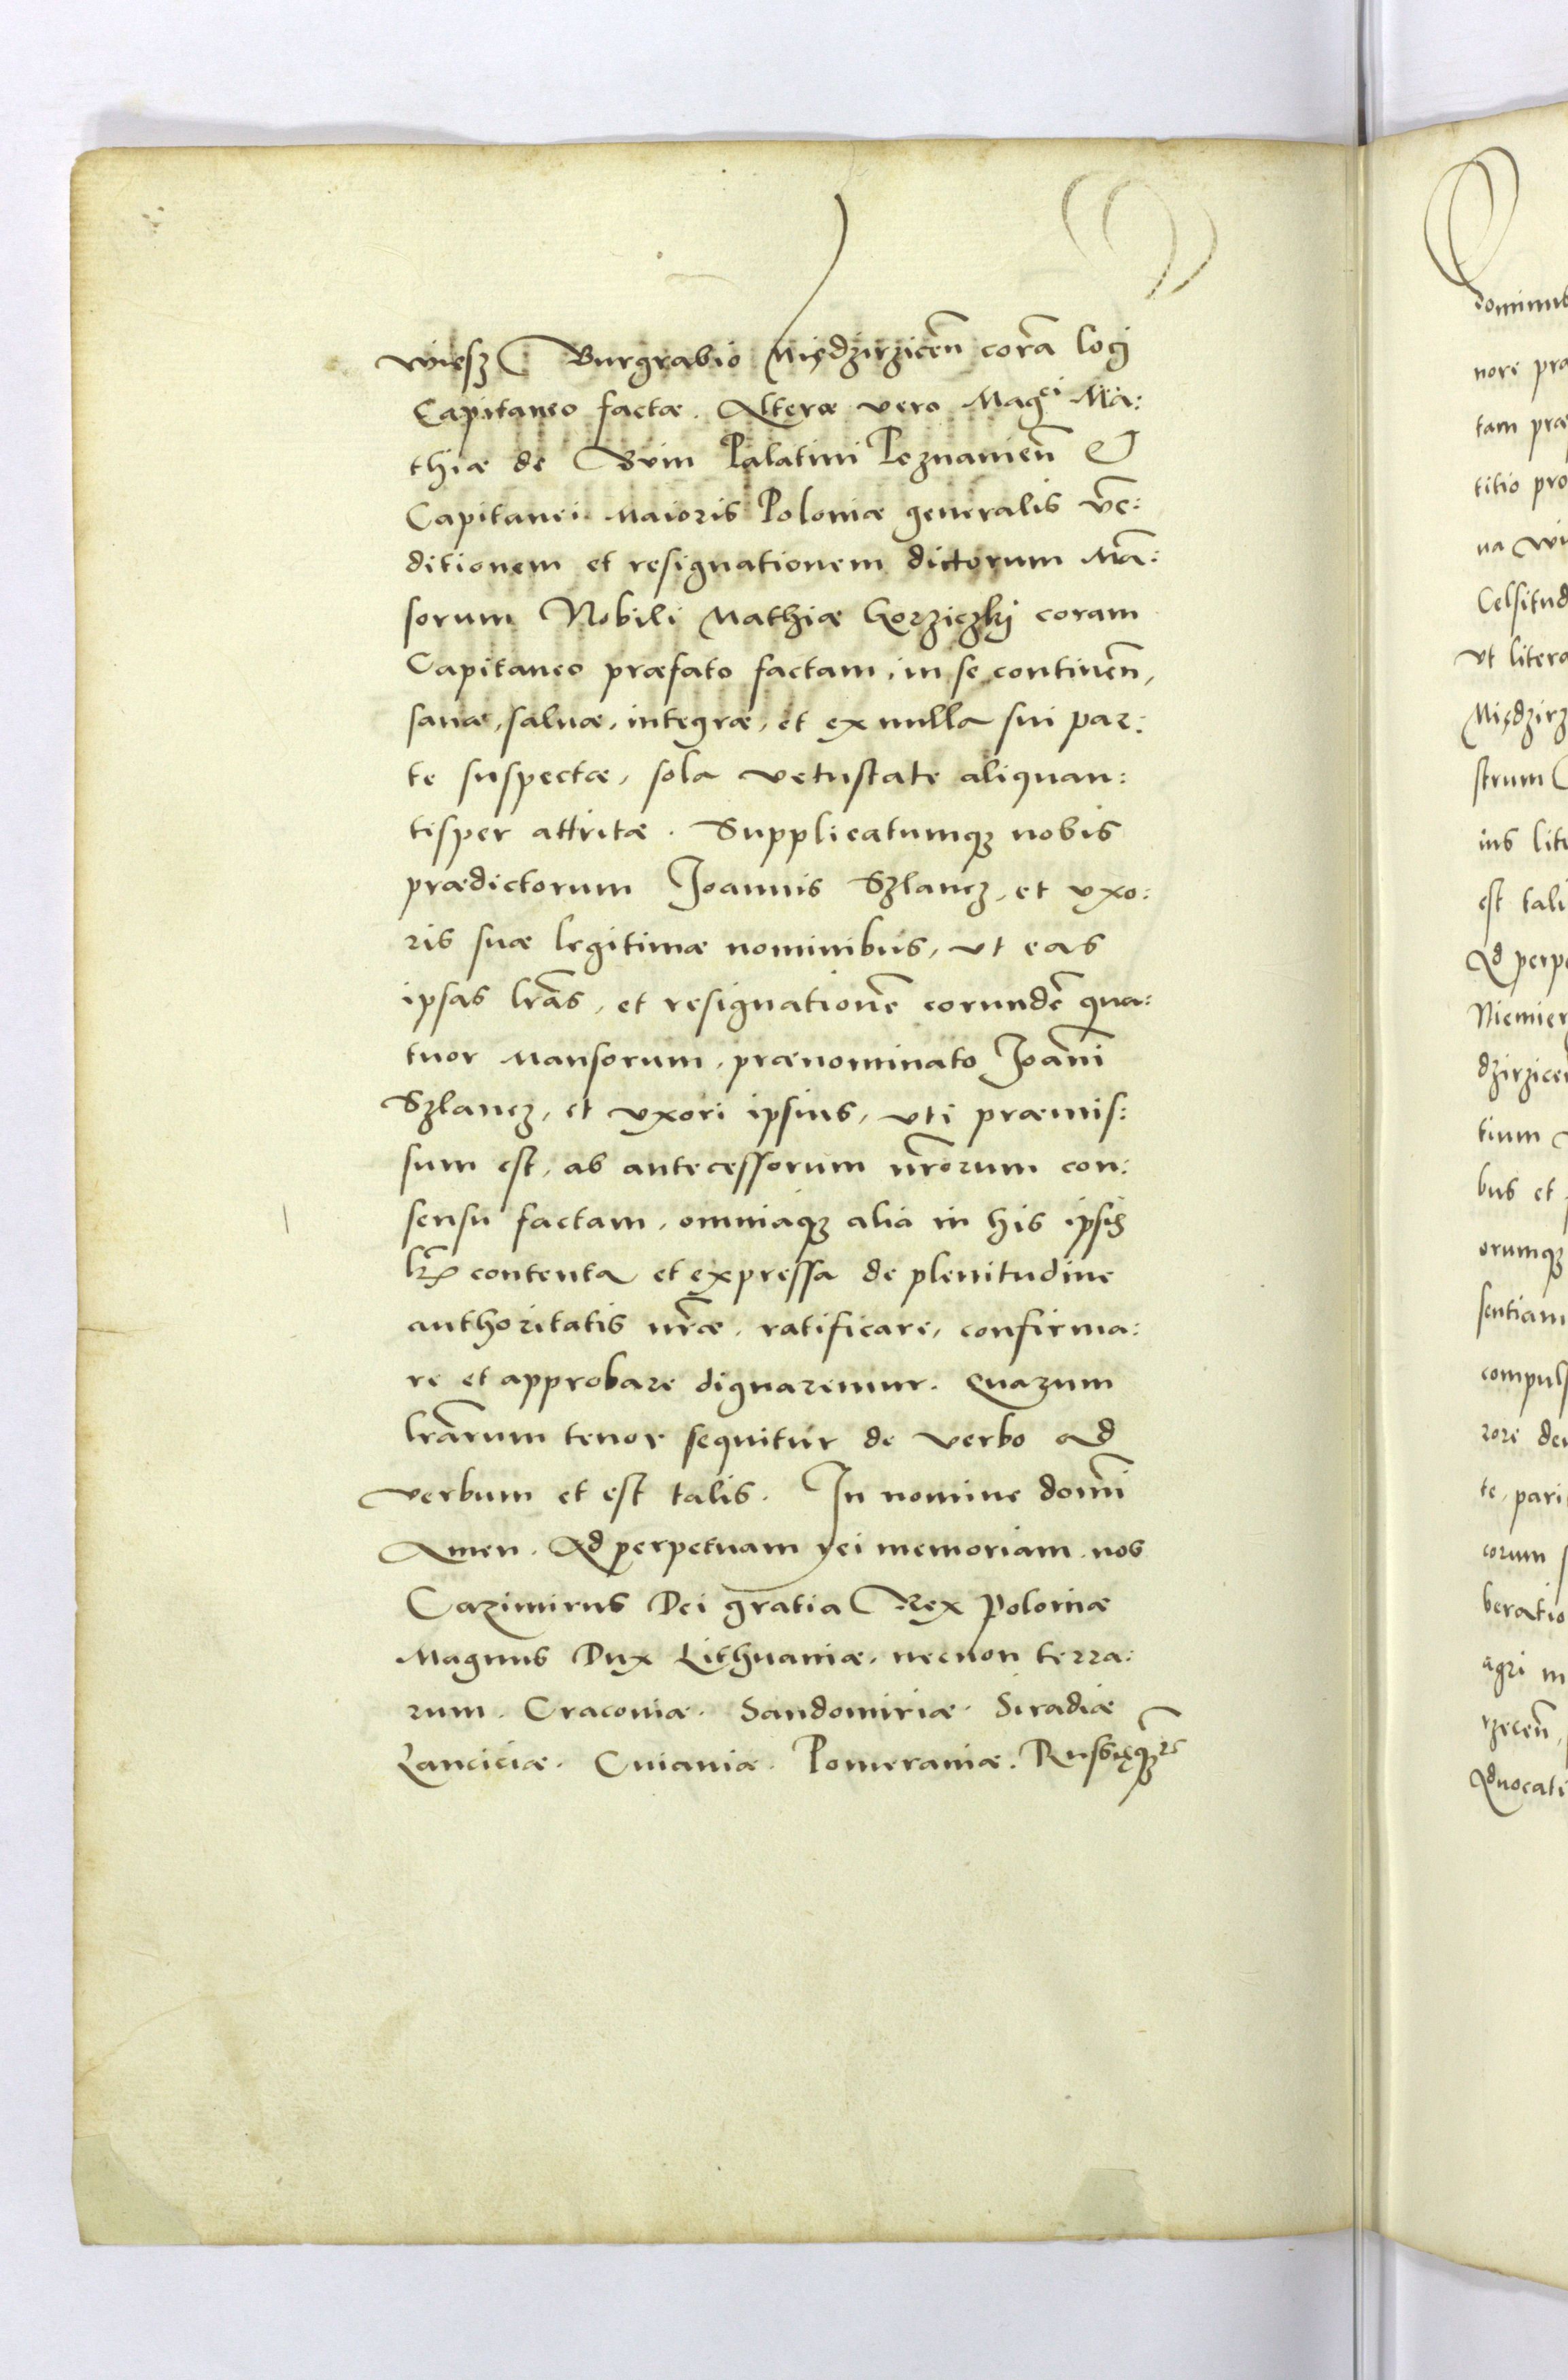 wiesz Burgrabio Międzirzicen̄ corā loci
Capitaneo factæ. Alteræ vero Mag^ci Ma:
thiæ de Bnin Palatini Poznanien̄ et
Capitanei Maioris Poloniæ generalis vē:
ditionem et resignationem dictorum Mā:
sorum Nobili Mathiæ Gorziczkj coram
Capitaneo præfato factam, in se continen̄,
sanæ, saluæ, integræ, et ex nulla sui par:
te suspectæ, sola vetustate aliquan:
tisper attritæ. Supplicatumq₃ nobis
prædictorum Joannis Szlancz, et vxo:
ris suæ legitimæ nominibus, vt eas
ipsas lrās, et resignationē eorundē qua:
tuor Mansorum, prænominato Joān̄i
Szlancz, et vxori ipsius, vti præmis:
sum est, ab antecessorum nr̄orum con:
sensu factam, omniaq₃ alia in his ipsis
lr̄is contenta et expressa de plenitudine
authoritatis nr̄æ, ratificare, confirma:
re et approbare dignaremur. Quarum
lrārum tenor sequitur de verbo ad
verbum et est talis. In nomine domīi
Amen. Ad perpetuam rei memoriam. nos
Cazimirus Dei gratia Rex Poloniæ
Magnus Dux Lithuaniæ, necnon terra:
rum. Cracoviæ. Sandomiriæ. Siradiæ
Lanciciæ. Cuiaviæ. Pomeraniæ. Russięq₃
dominu
nore pra
tam præ
titio pro
na wi
Celsitud
vt litera
Międzirz
strum
ius lite
est tali
Ad perpe
Niemier
dzirzicen
tium
bus et
orumq₃
sentiam
compuls
rore de
te, pari
corum
beratio
agri m
rzecen̄,
Aduocati